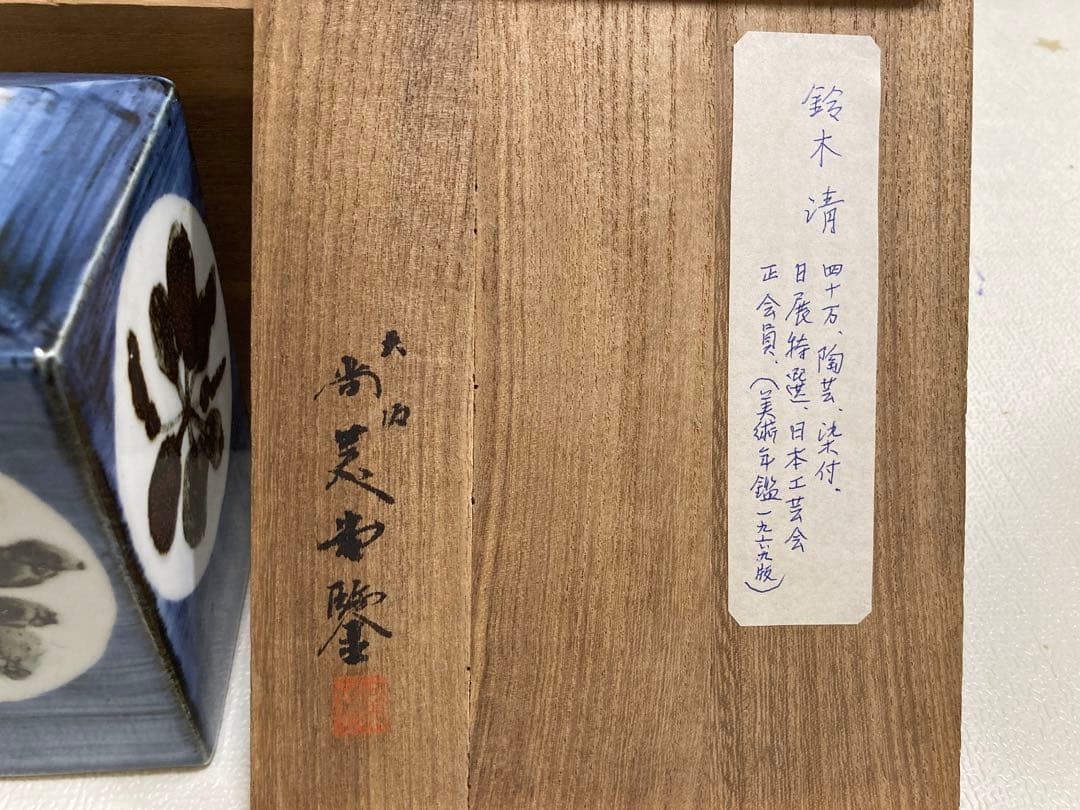 鈴木 清
四十万、陶芸、染付、
日展特選、日本工芸会
正会員、(美術年鑑一九六九版)
大内
尚美堂鑒